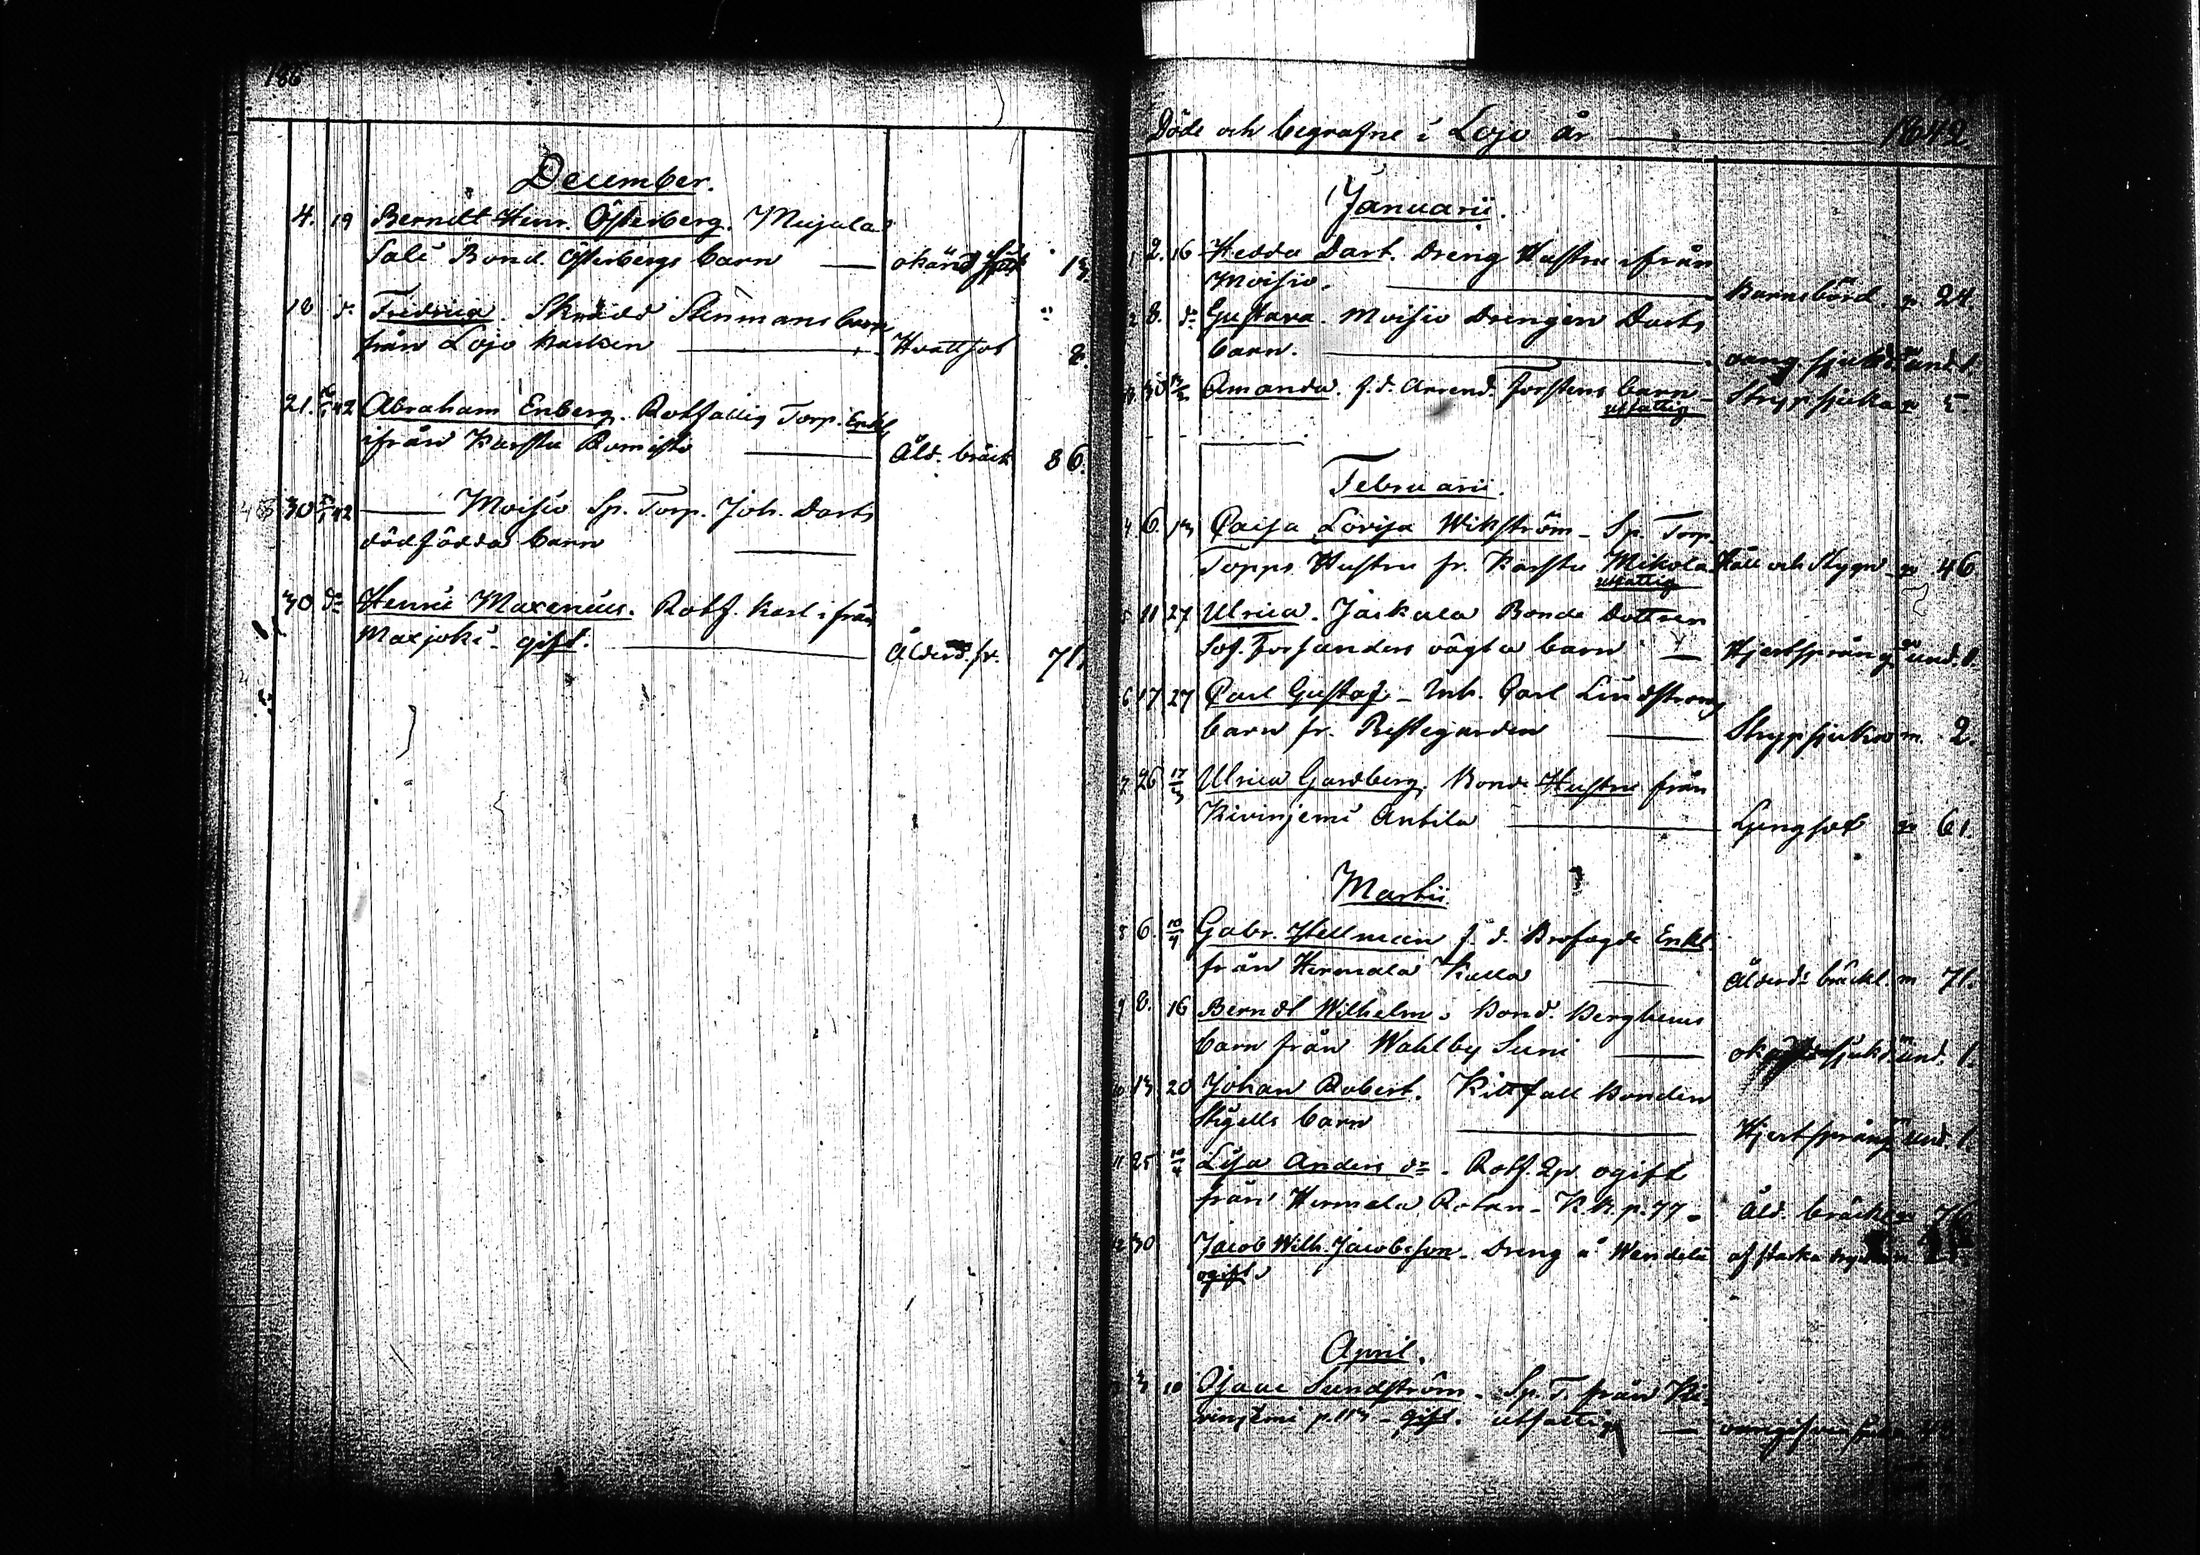 188
December.
4. 19 Berndt Henr. Österberg. Mujala
Sali Bond. Österbergs barn — okänd sjuk 13
18 d:o Fredrica. Skrädd Stenmans barn
från Lojo backen — Hvattsot 8.
21. 42 Abraham Enberg. Rotfattig Torp. Enkl.
ifrån Karstu Romisto — Åld. bräck 86.
30 42 — Moisio Sp. Torp. Joh. Darts
dödfödda barn —
30 d:o Henric Maxenius. Rotf. karl ifrån
Maxjoki - gift. — Ålderd. br. 71.
Döde och begrafne i Lojo år — 1842
Januarii.
1 2. 16 Hedda Dart. Dreng Hustru ifrån
Moisio. — Barnsbörd. q. 24.
2 8. d:o Gustava. Moisio Drengen Darts
barn. — und. 1.
3 30 Amanda. f.d. Arrend. Forstens barn - Strypsjuka q 5.
utfattig
Februarii.
4 6. 13 Cajsa Lovisa Wikström - Sp. Torp.
Topps Hustru fr. Karstu Mikola Håll och Stygn q 46
utfattig
5 11 27 Ulrica. Jackala Bonde Dottren
Sof. Forsanders oägta barn — Hjertsprång q und. 1.
6 17 27 Carl Gustaf - Inh. Carl Lindströms
barn fr. Ristegården — Strypsjuka m. 2.
7 26 17/3 Ulrica Gardberg, Bonde Hustru från
Kivinjemi Anttila — Lungsot q 61.
Martii
8 6. 10/4 Gabr. Hellman f.d. Brofogde Enkl.
från Hermala Kalla — Ålderd:s bräckl. m 71.
9 8. 16 Berndt Wilhelm. Bond. Berghems
barn från Wahlby Suni — m und. 1.
10 13 20 Johan Robert. Kittfall Bonden
Stgells barn — Hjertsprång und 1.
11 25 10/4 Lisa Anders d:r - Rotf. Qv. ogift
från Hermala Rotan - K.B. p. 77. Åld. bräckl. q 76
12 30 Jacob Wilh. Jacobsson - Dreng å Wendelä af starka drycker
ogift.
April.
3 10 Isaac Sundström - Sp. T. från Ki-
vinjemi p. 113 - gift. utfattig —